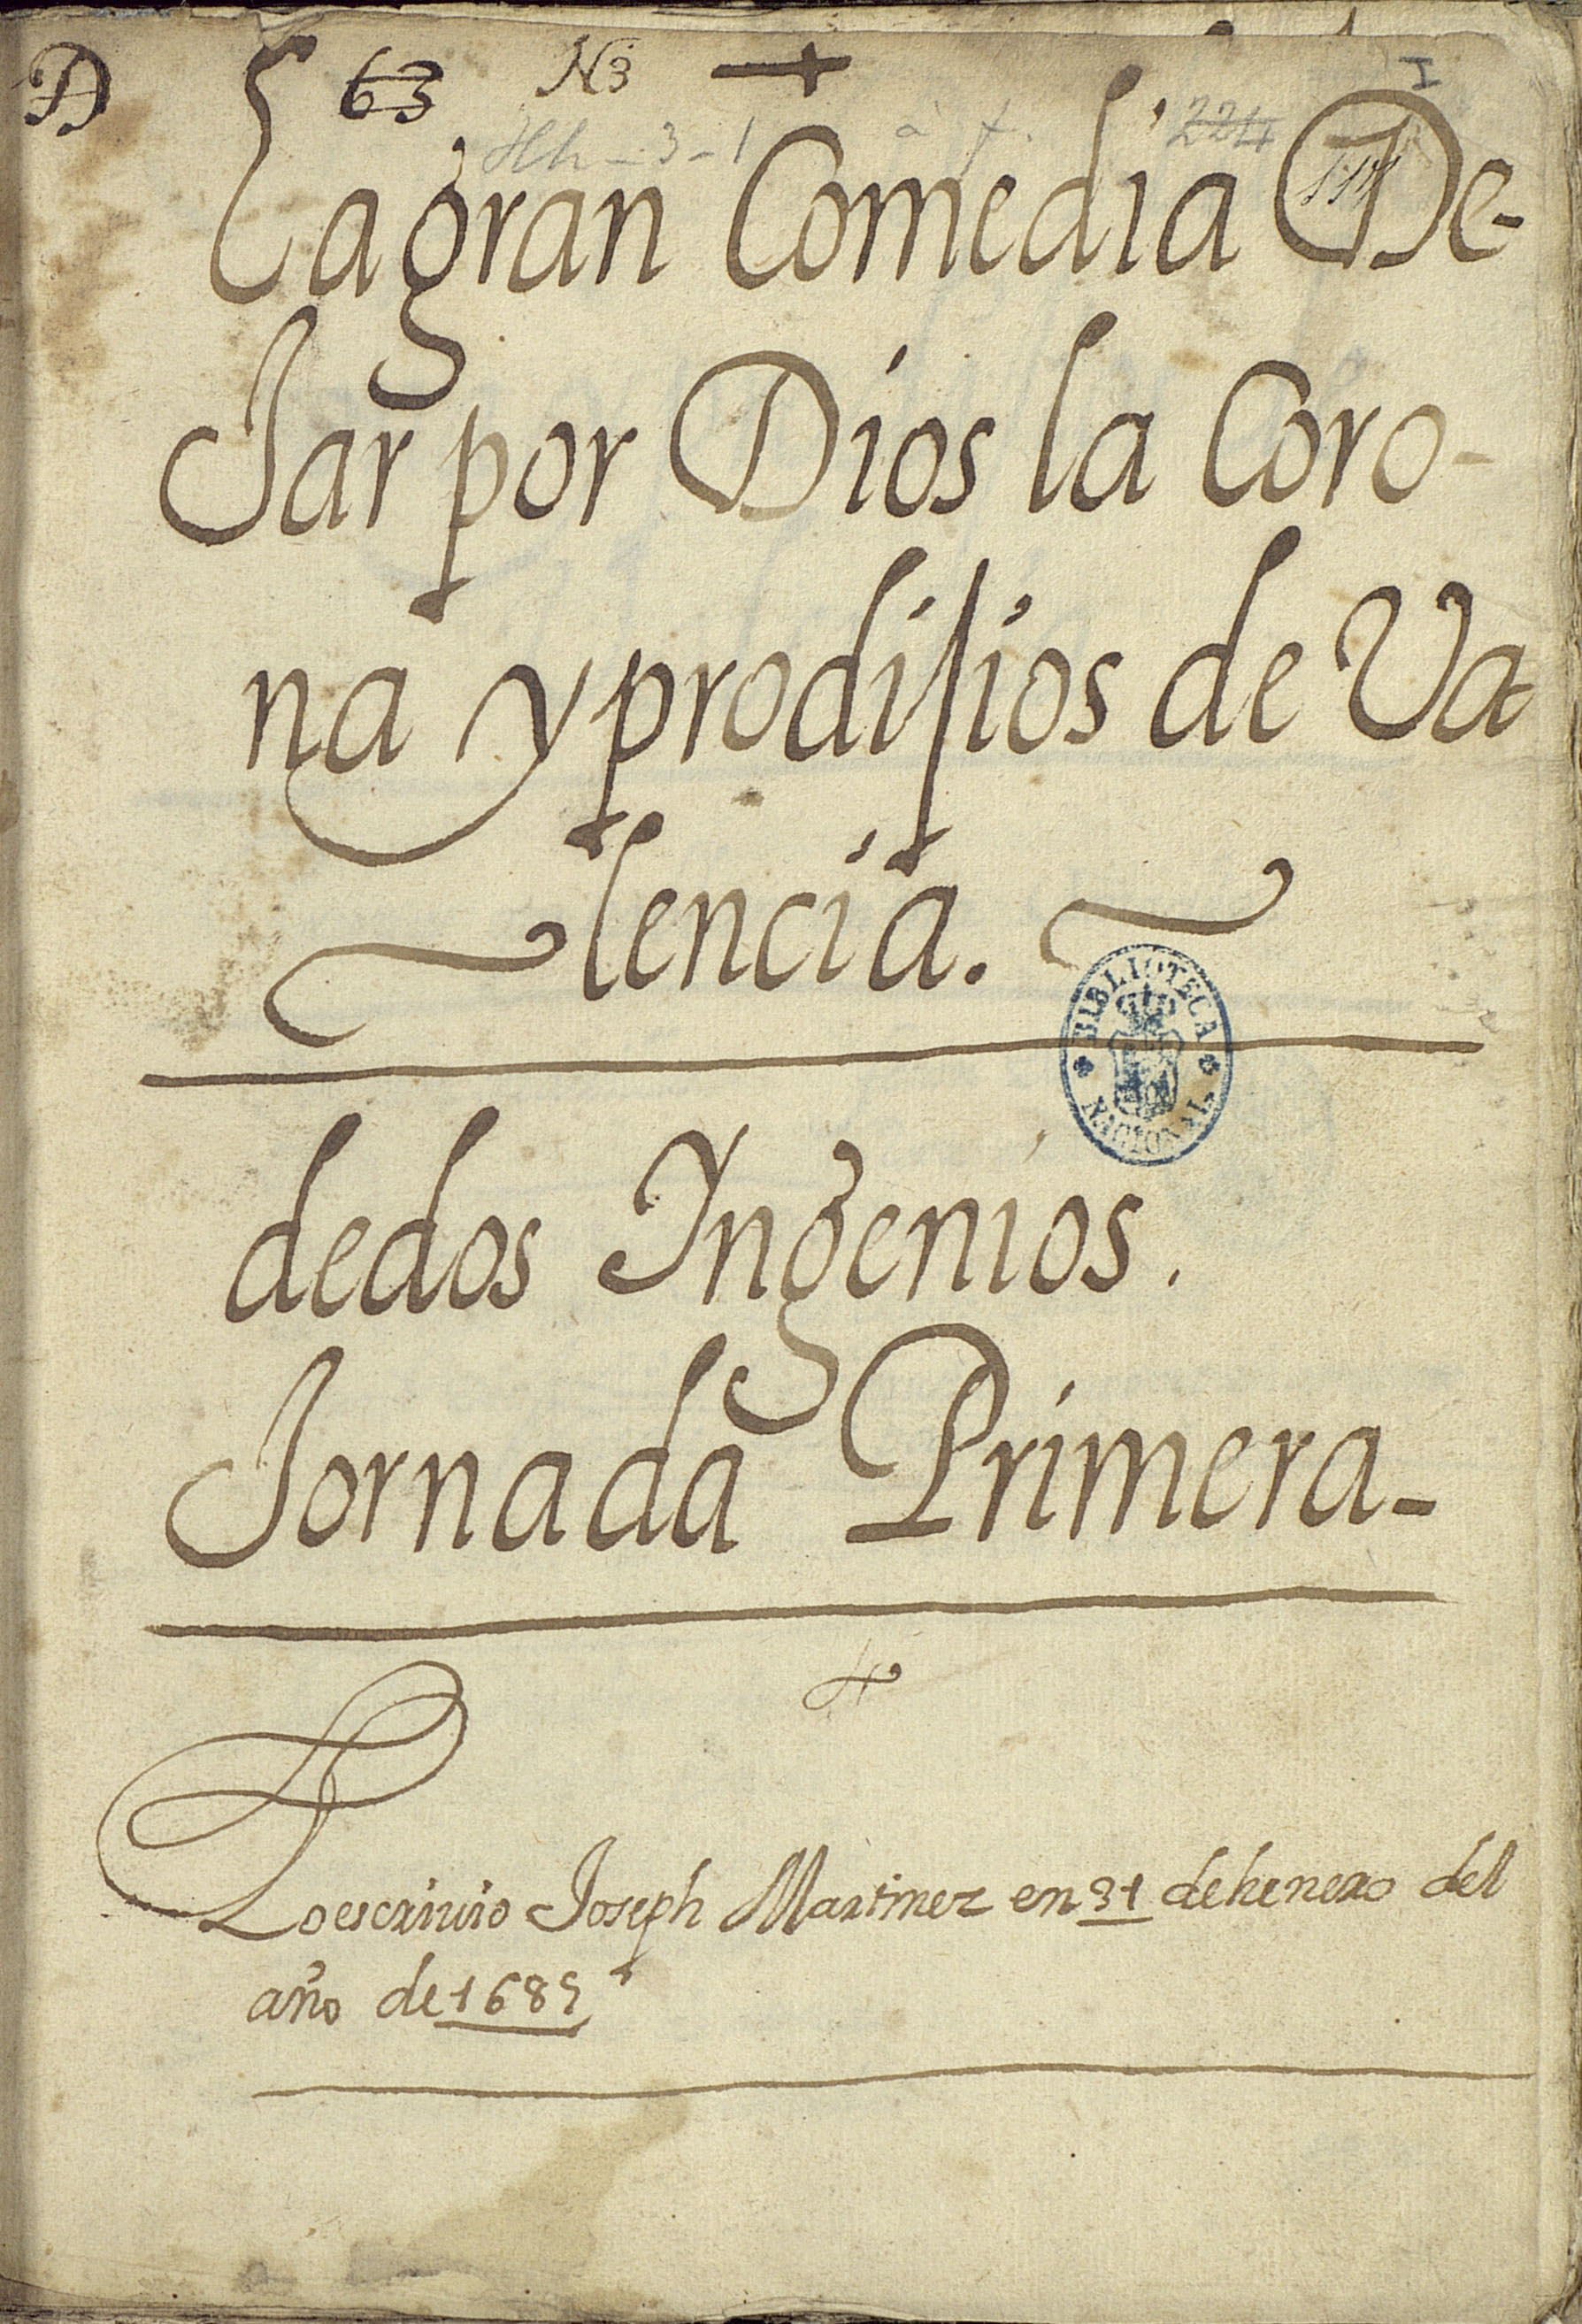 D 63 N3 I
Hh-3-1 224
La gran Comedia De-
Jar por Dios la Coro-
na y prodijios de Va
lencia.
BIBLIOTECA NACIONAL
dedos Ingenios.
Jornada Primera-
Lo escrivio Joseph Martinez en 31 de henero del
año de 1685